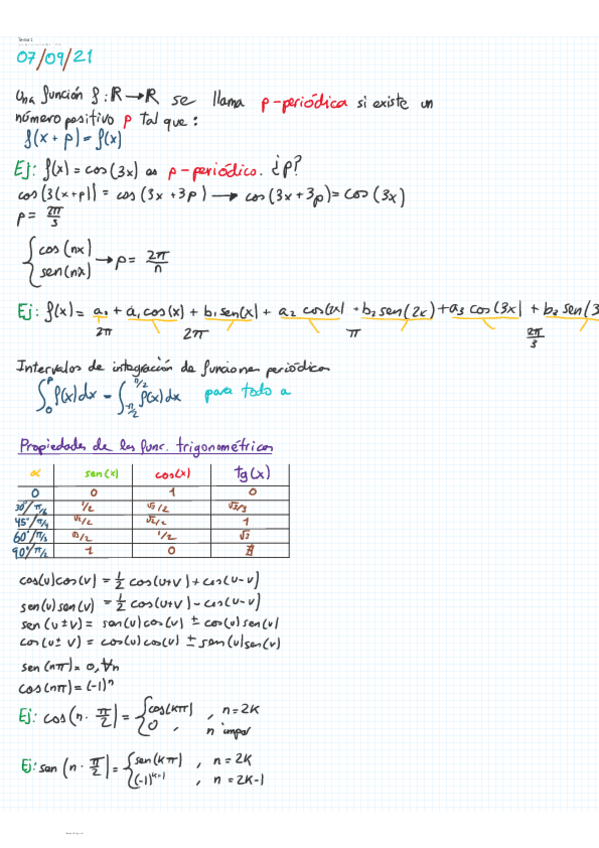 Tema 1
07/09/21
Una función f: R → R se llama p-periódica si existe un
número positivo p tal que:
f(x + p) = f(x)
Ej: f(x) = cos(3x) es p-periódico. ¿p?
cos(3(x+p)) = cos(3x+3p) → cos(3x+3p) = cos(3x)
p = 2π/3
{cos(nx) sen(nx) → p = 2π/n
Ej: f(x) = a₀ + a₁cos(x) + b₁sen(x) + a₂ cos(2x) + b₂sen(2x) + a₃ cos(3x) + b₂ sen(3
2π 2π π 2π/3
Intervalos de integración de funciones periódicas
∫₀^p f(x)dx = ∫_{-p/2}^{p/2} f(x)dx para todo a
Propiedades de las func. trigonométricas
α sen(x) cos(x) tg(x)
0 0 1 0
30°/π/6 1/2 √3/2 √3/3
45°/π/4 √2/2 √2/2 1
60°/π/3 √3/2 1/2 √3
90°/π/2 1 0 ∄
cos(u)cos(v) = 1/2 cos(u+v) + cos(u-v)
sen(u)sen(v) = 1/2 cos(u+v) - cos(u-v)
sen(u±v) = sen(u)cos(v) ± cos(u)sen(v)
cos(u±v) = cos(u)cos(v) ± sen(u)sen(v)
sen(nπ) = 0, ∀n
cos(nπ) = (-1)ⁿ
Ej: cos(n·π/2) = {cos(kπ) , n=2K
0 , n impar
Ej: sen(n·π/2) = {sen(kπ) , n=2K
(-1)^{k+1} , n=2K-1